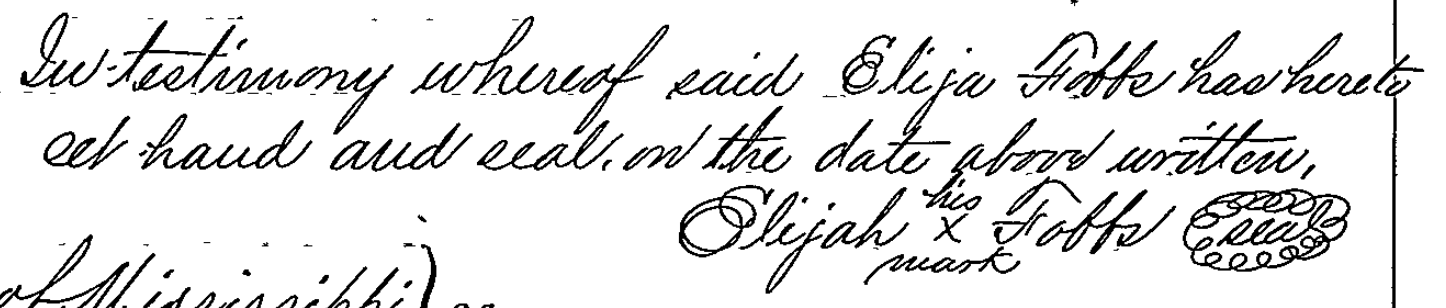 In testimony whereof said Elija Fobbs has hereto
set hand and seal, on the date above written,
his
Elijah X Fobbs seal
mark
of Mississippi